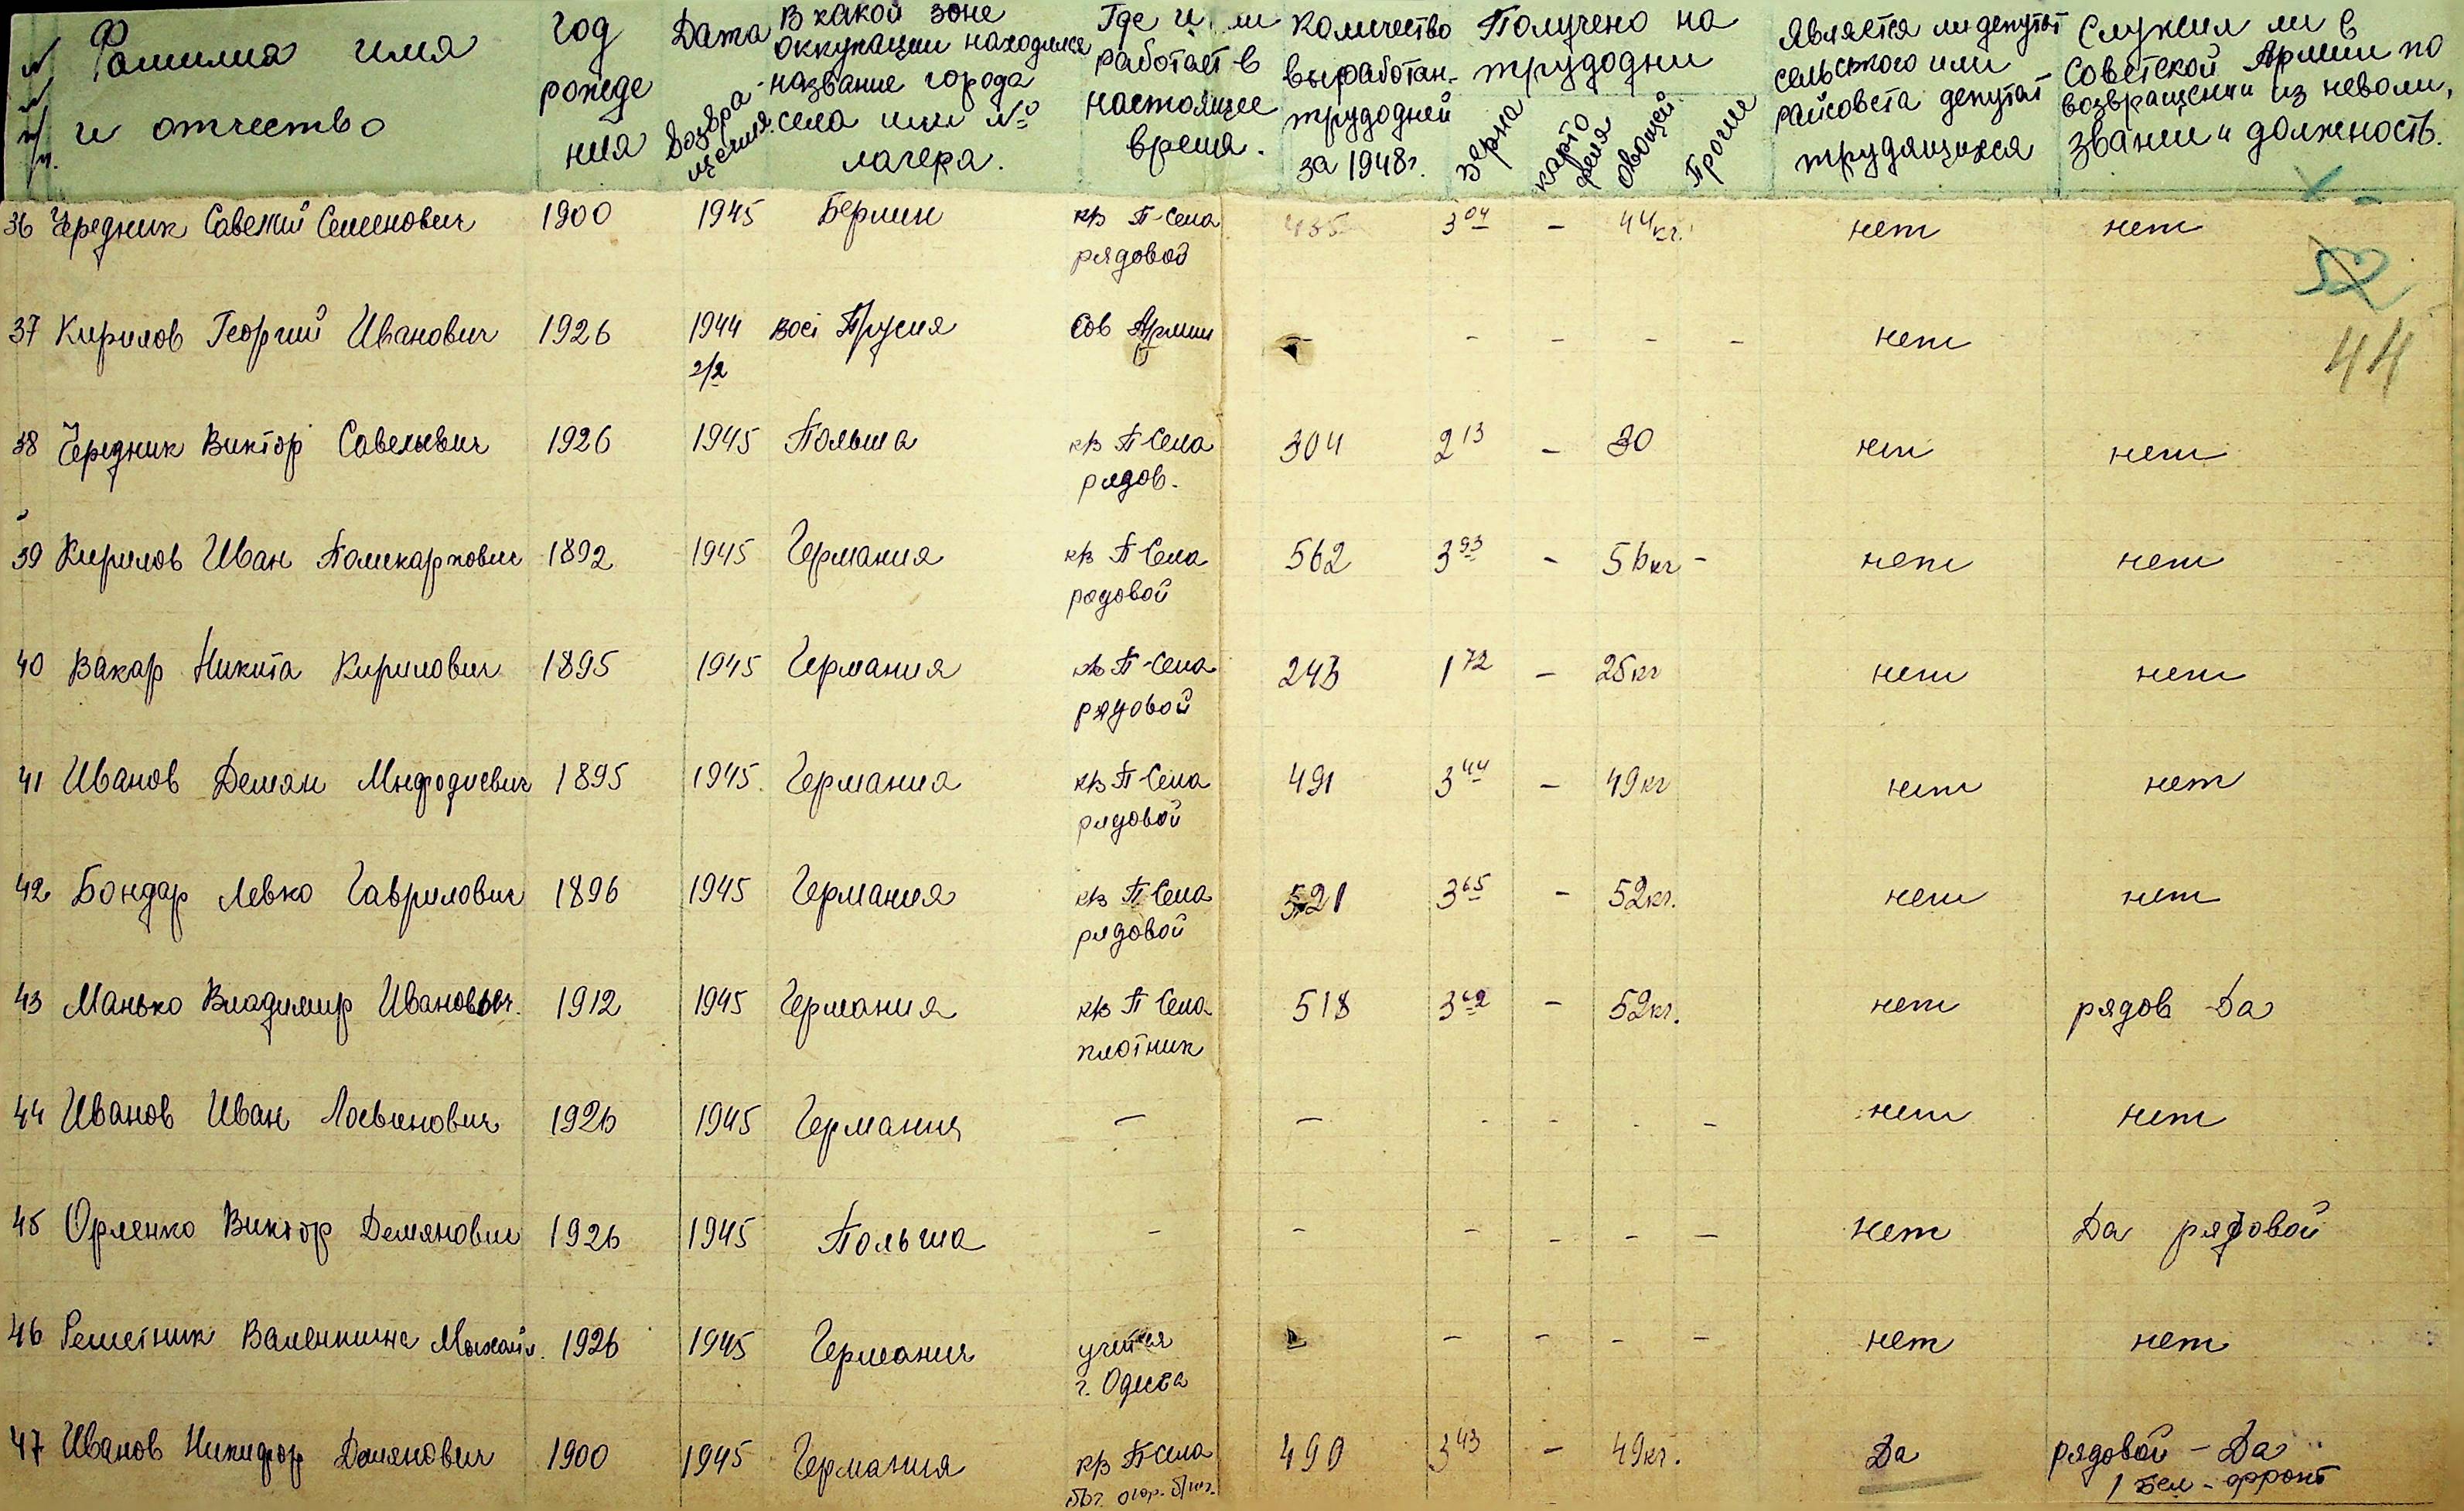 № п/п.
Фамилия имя и отчество
Год рождения
Дата возвращения
В какой зоне оккупации находился название города села или № лагеря.
Где и работает в настоящее время.
Количество выработан. трудодней за 1948 г.
Получено на трудодни
зерна
картофеля
овощей
Прочие
Является ли депутат сельского или райсовета депутат трудящихся
Служил ли в Советской Армии по возвращении из неволи, звание и должность.
36 Чередник Савелий Семенович 1900 1945 Берлин кв П-Села 435 3 04 - 44 кг. нет нет
рядовой
52
37 Кирилов Георгий Иванович 1926 1944 Вост Прусия Сов Армии - - - - - нет
2/2
44
38 Чередник Виктор Савельевич 1926 1945 Польша кв П-Села 304 2 13 - 30 нет нет
рядов.
39 Кирилов Иван Поликарпович 1892 1945 Германия кв П Села 562 3 93 - 56 кг - нет нет
рядовой
40 Вакар Никита Кирилович 1895 1945 Германия кв П-Села 246 1 72 - 25 кг нет нет
рядовой
41 Иванов Демян Мифодиевич 1895 1945. Германия кв П Села 491 3 44 - 49 кг нет нет
рядовой
42 Бондар Левко Гаврилович 1896 1945 Германия кв П Села 521 3 65 - 52 кг. нет нет
рядовой
43 Манько Владимир Иванович. 1912 1945 Германия кв П Села 518 3 62 - 52 кг. нет рядов Да
плотник
44 Иванов Иван 1926 1945 Германия - - - - - - нет нет
45 Орленко Виктор Демянович 1926 1945 Польша - - - - - - нет Да рядовой
46 Решетник Валентина Михайл. 1926 1945 Германия учится - - - - нет нет
г. Одесса
47 Иванов Никифор Демянович 1900 1945 Германия кв П Села 490 3 43 - 49 кг. Да рядовой - Да
1 бел - фронт